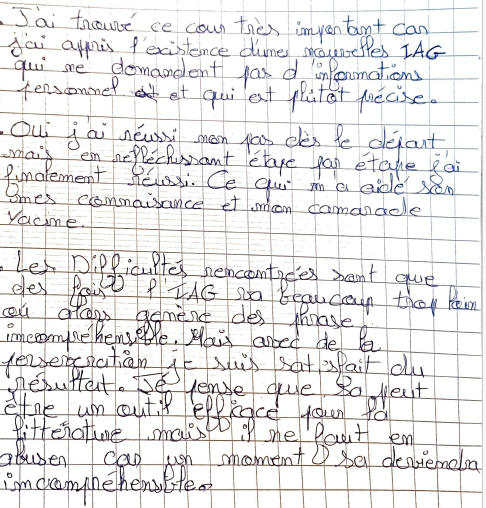 . J'ai trouvé ce cour très important car
j'ai appris l'existence d'unes nouvelles IAG
qui ne demandent pas d'informations
personnel et qui est plutot précise.
. Oui j'ai réussi non pas dès le départ
mais en réfléchissant étape par étape j'ai
finalement réussi. Ce qui m'a aidé son
mes connaisance et mon camarade
Yacine.
. Les Difficultés rencontrées sont que
des fois l'IAG va beaucoup trop loin
ou alors génére des phrase
incompréhensible. Mais avec de la
je suis satisfait du
résultat. Je pense que sa peut
être un outil efficace pour la
littérature mais il ne faut en
abuser car un moment sa deviendra
incompréhensible.